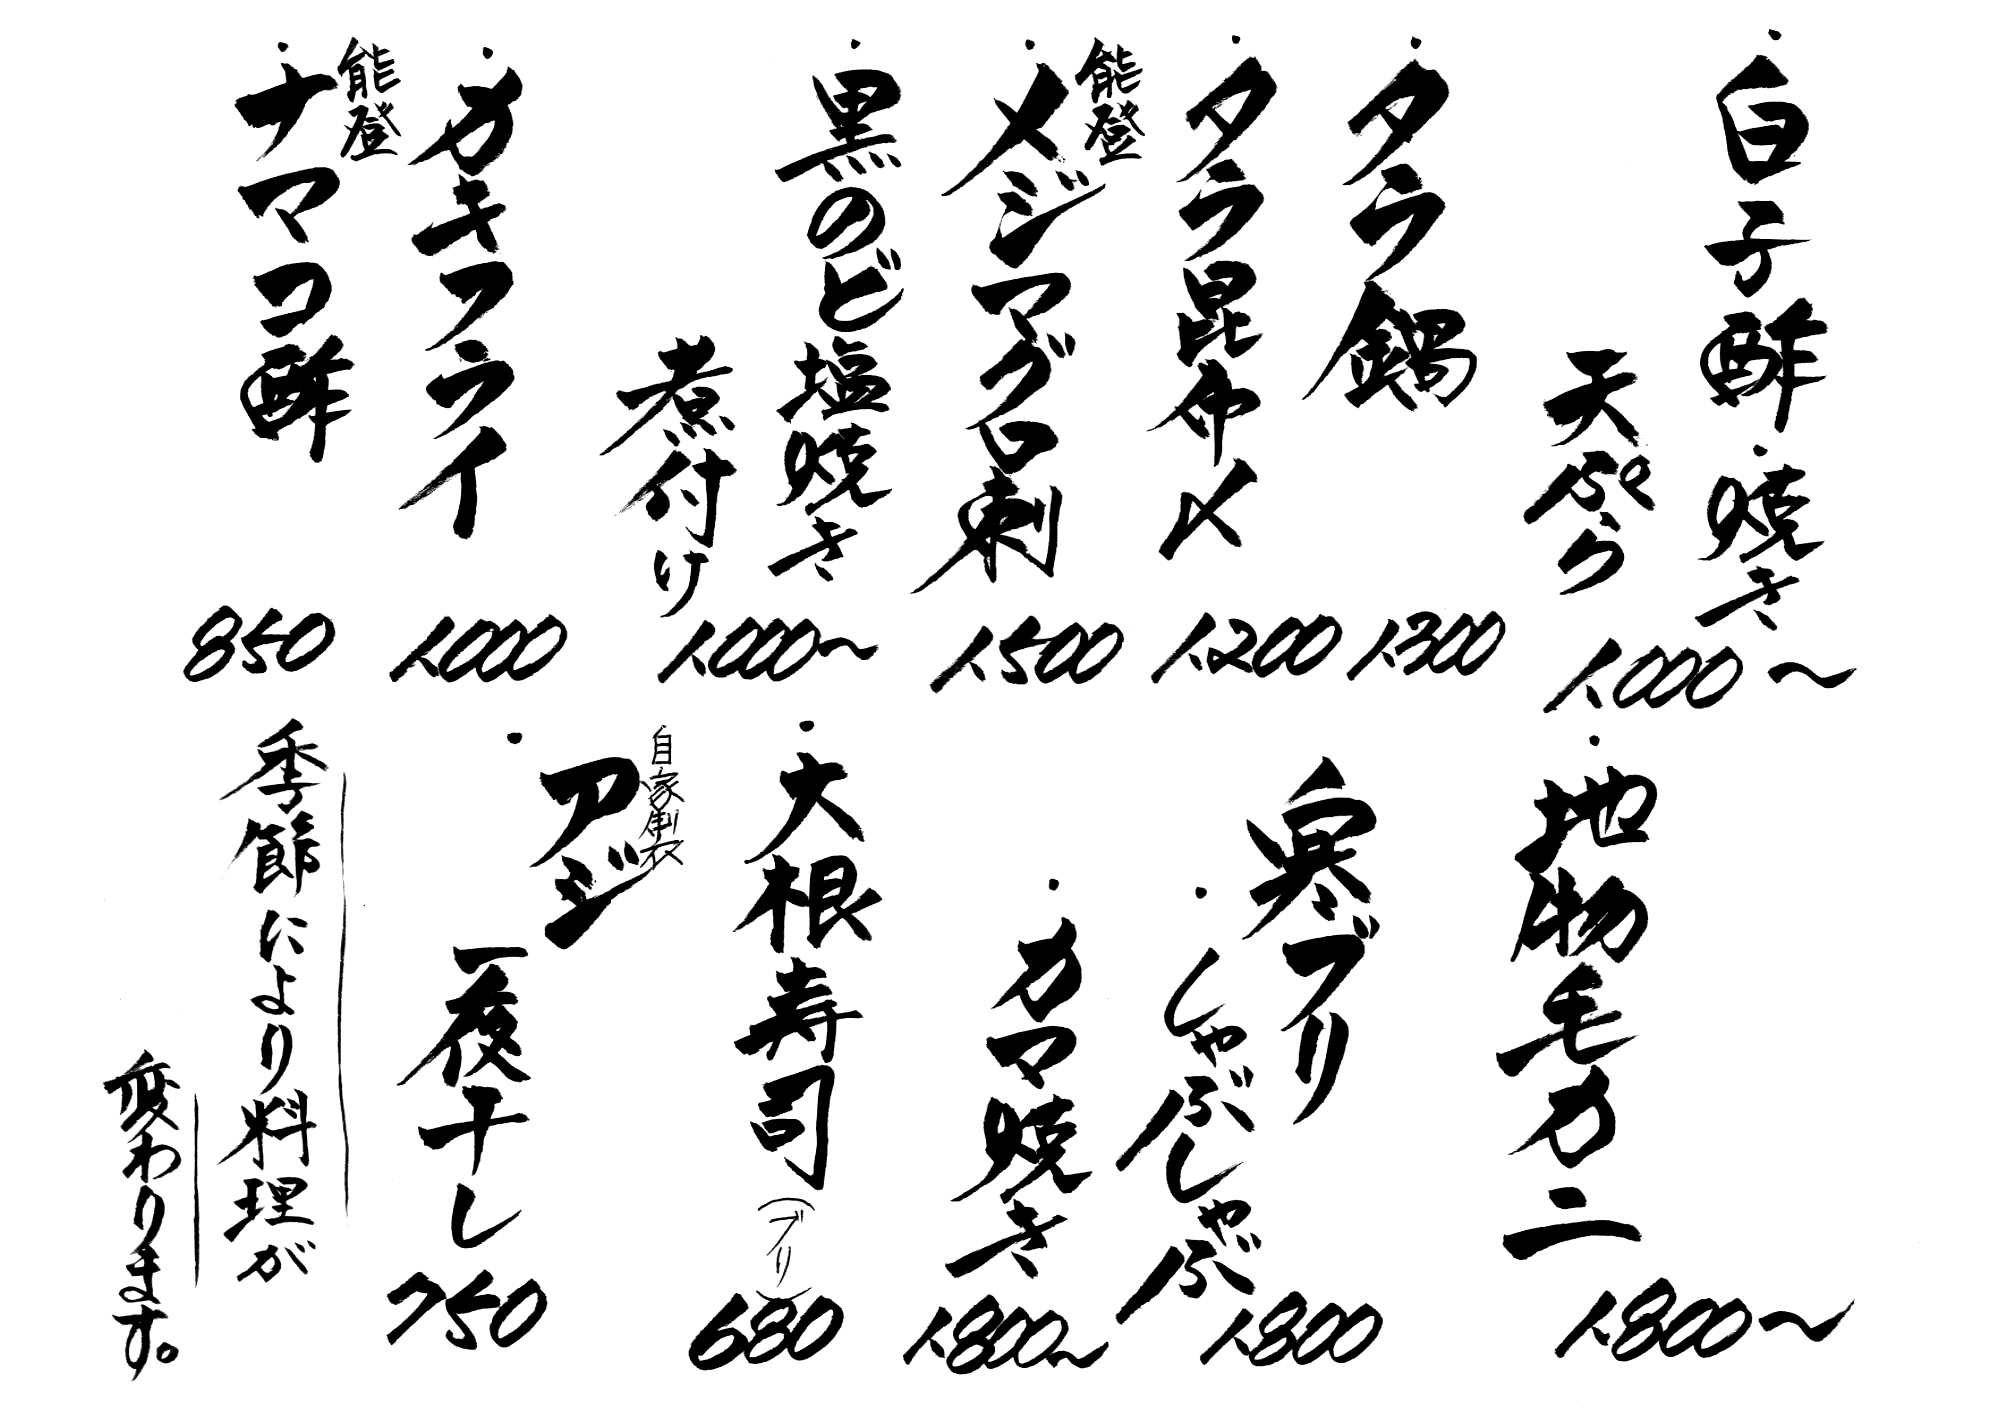 ・白子酢・焼き
天ぷら
1.000～
・タラ鍋
1.300
・タラ昆布〆
1.200
能登
・メジマグロ刺
1.500
・黒のど塩焼き
煮付け
1.000～
・カキフライ
1.000
能登
・ナマコ酢
850
・地物毛カニ
1.800～
寒ブリ
・しゃぶしゃぶ
1.800
・カマ焼き
1.800～
・大根寿司(ブリ)
680
自家製
・アジ
一夜干し
750
季節により料理が
変わります。